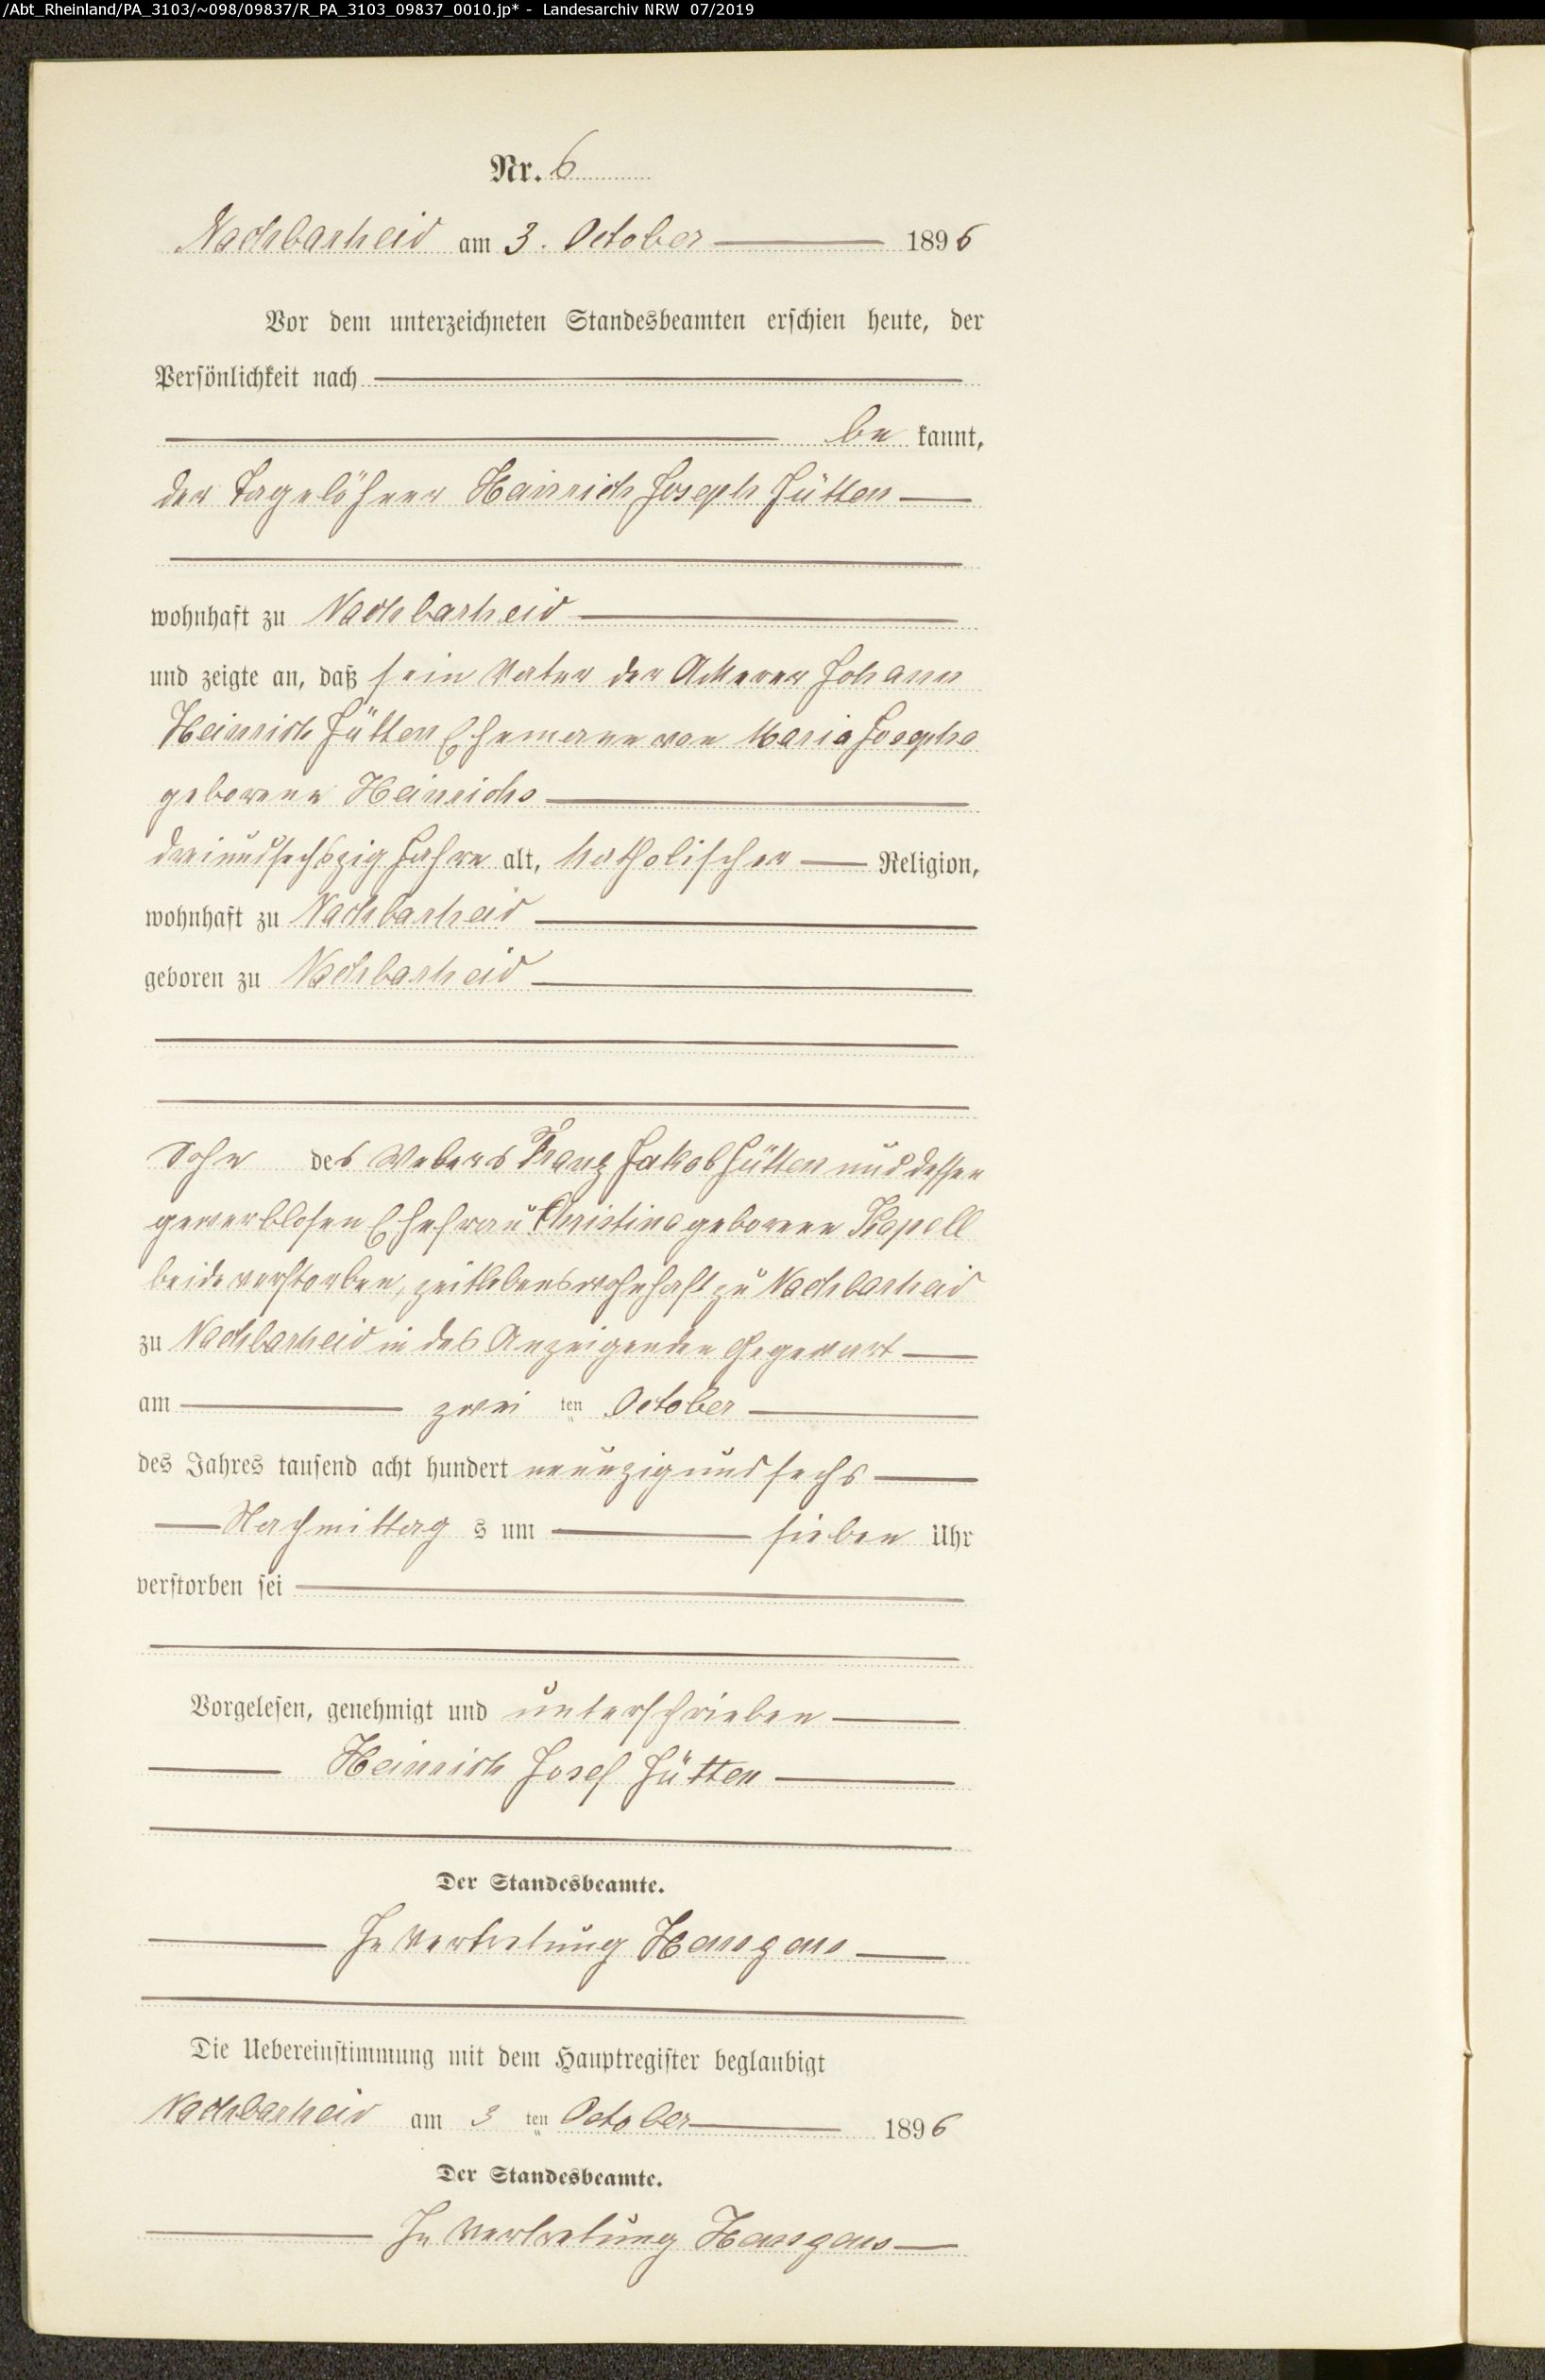 /Abt_Rheinland/PA_3103/~098/09837/R_PA_3103_09837_0010.jp* - Landesarchiv NRW 07/2019
Nr. 6
Nachbarheid am 3. October 1896
Vor dem unterzeichneten Standesbeamten erschien heute, der
Persönlichkeit nach
be kannt,
der Tagelöhner Heinrich Joseph Jütten
wohnhaft zu Nachbarheid
und zeigte an, daß sein Vater der Ackerer Johann
Heinrich Jütten Ehemann von Maria Josepha
geborene Heinrichs
dreiundsechszig Jahre alt, katholischer Religion,
wohnhaft zu Nachbarheid
geboren zu Nachbarheid
Sohn des Webers Franz Jakob Jütten und dessen
gewerblosen Ehefrau Christina geborene Kapell
beide verstorben, zeitlebens wohnhaft zu Nachbarheid
zu Nachbarheid in des Anzeigenden Gegenwart
am zwei ten October
des Jahres tausend acht hundert neunzig und sechs
Nachmittag s um sieben Uhr
verstorben sei
Vorgelesen, genehmigt und unterschrieben
Heinrich Josef Jütten
Der Standesbeamte.
In Vertretung
Die Uebereinstimmung mit dem Hauptregister beglaubigt
Nachbarheid am 3 ten October 1896
Der Standesbeamte.
In Vertretung